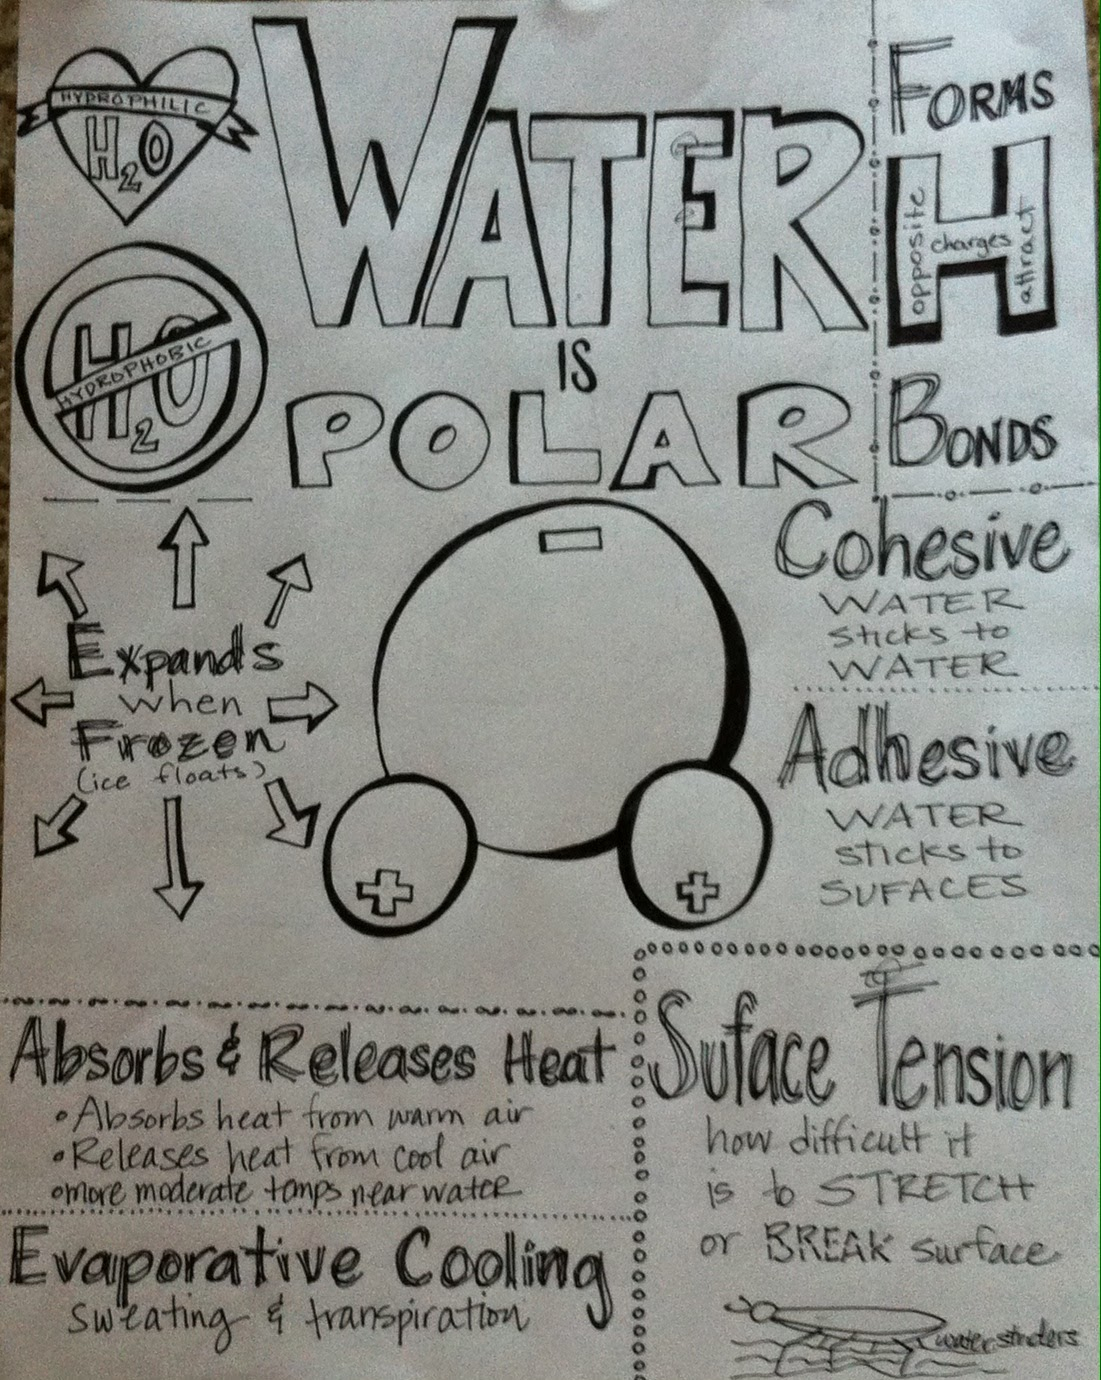 HYDROPHILIC
H2O
WATER
IS
POLAR
FORMS
H
opposite
charges
attract
BONDS
H2O
HYDROPHOBIC
Expands
when
Frozen
(ice floats)
Cohesive
WATER
sticks to
WATER
Adhesive
WATER
sticks to
SUFACES
Absorbs & Releases Heat
•Absorbs heat from warm air
•Releases heat from cool air
•more moderate temps near water
Evaporative Cooling
sweating & transpiration
Suface Tension
how difficult it
is to STRETCH
or BREAK surface
water striders